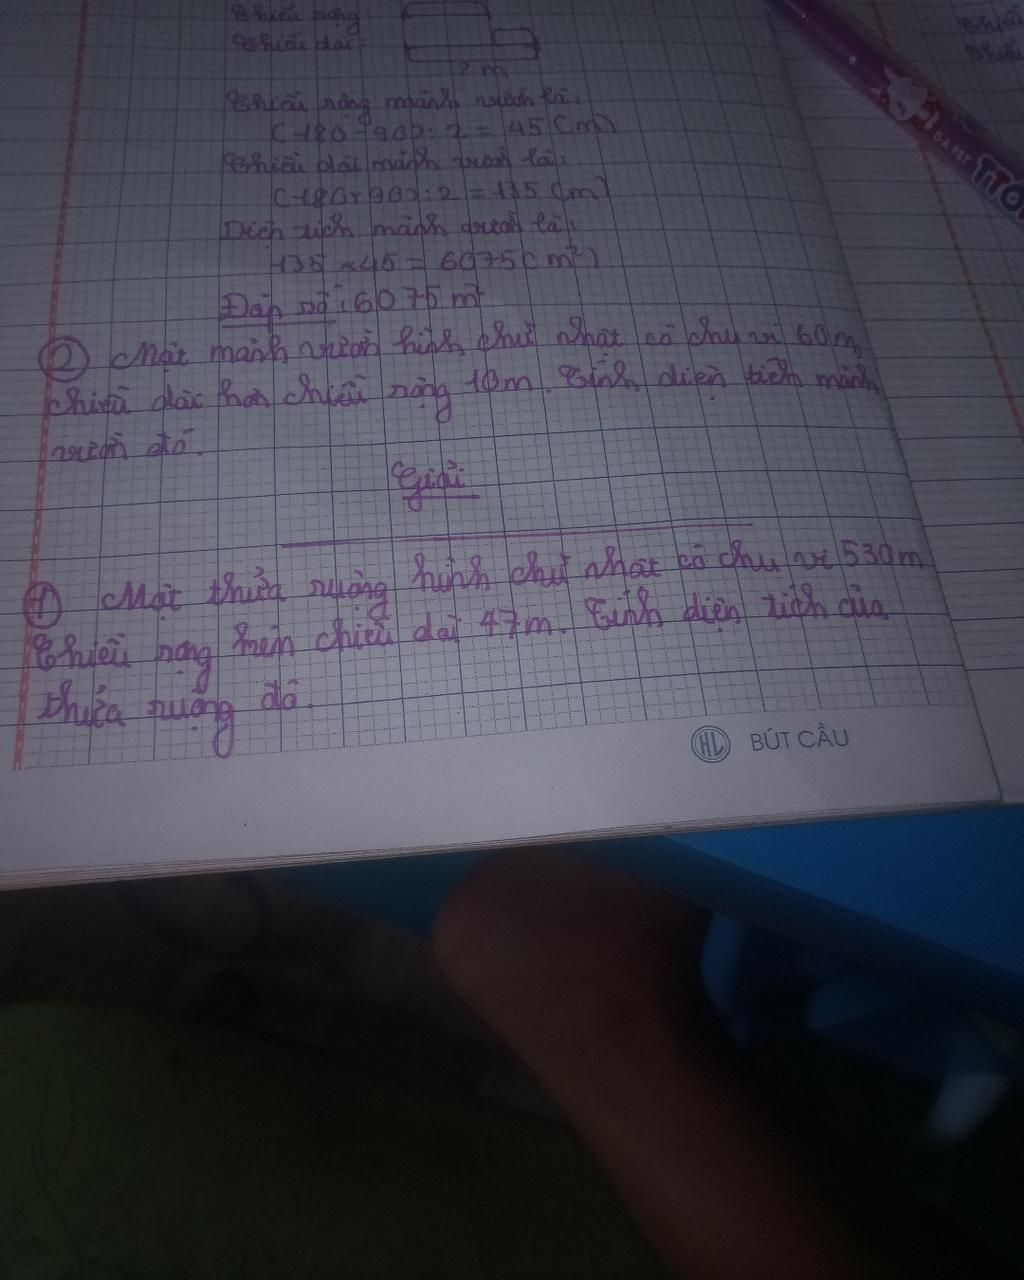 Chiều rộng:
Chiều dài:
? m
Chiều rộng mảnh vườn là:
(180 - 90) : 2 = 45 (m)
Chiều dài mảnh vườn là:
(180 + 90) : 2 = 135 (m)
Diện tích mảnh vườn là:
135 x 45 = 6075 (m²)
Đáp số: 6075 m²
② Một mảnh vườn hình chữ nhật có chu vi 60m,
chiều dài hơn chiều rộng 10m. Tính diện tích mảnh
vườn đó.
Giải
① Một thửa ruộng hình chữ nhật có chu vi 530m
Chiều rộng kém chiều dài 47m. Tính diện tích của
thửa ruộng đó.
HL BÚT CẦU
Chiều
Chiều
TTO